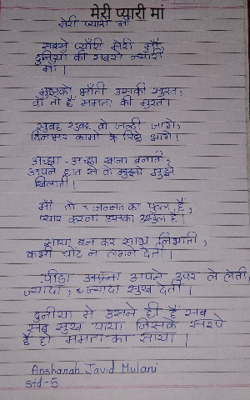 मेरी प्यारी मां
मेरी प्यारी माँ
सबसे प्यारी मेरी माँ,
दुनिया की सबसे न्यारी
माँ।
मुझको भाँती उसकी सुरत,
वो तो है ममता की मुरत।
सुबह सुबह वो जल्दी जागे,
दिनभर कामों के पिछे भागे।
अच्छा-अच्छा खाना बनाती,
अपने हात से के मुझको
खिलाती।
माँ तो जन्नत का फुल है,
प्यार करना उसका असुल है।
साया बन कर साथ निभाती,
कभी चोट न लगने देती।
पीडा अपने उपर ले लेती,
ज्यादा, ज्यादा सुख देती।
दुनिया में उसने ही है सब
सब सुख पाया जिसके सरपे
है हो ममता का साया।
Anshanah Javid Mulani
std-5